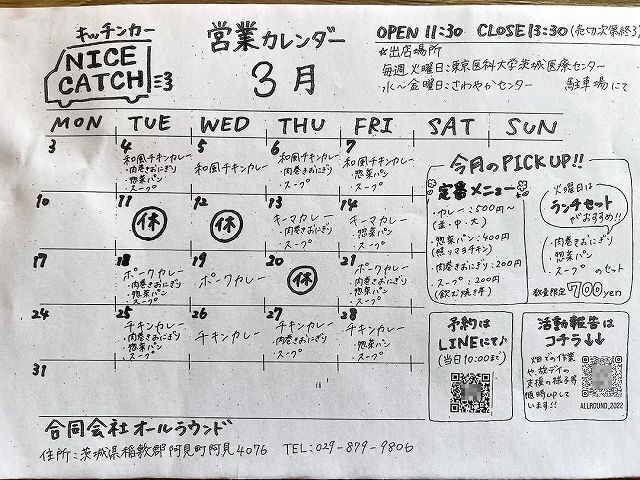 キッチンカー
NICE
CATCH
営業カレンダー
3月
OPEN 11:30 CLOSE 13:30 (売切次第終了)
☆出店場所
毎週火曜日:東京医科大学茨城医療センター
水〜金曜日:さわやかセンター 駐車場にて
MON TUE WED THU FRI SAT SUN
3
4
和風チキンカレー
・肉巻きおにぎり
・惣菜パン
・スープ
5
和風チキンカレー
6
和風チキンカレー
・肉巻きおにぎり
・スープ
7
和風チキンカレー
・惣菜パン
・スープ
10
11
休
12
休
13
キーマカレー
・肉巻きおにぎり
・スープ
14
キーマカレー
・惣菜パン
・スープ
17
18
ポークカレー
・肉巻きおにぎり
・惣菜パン
・スープ
19
ポークカレー
20
休
21
ポークカレー
・肉巻きおにぎり
・惣菜パン
・スープ
24
25
チキンカレー
・肉巻きおにぎり
・惣菜パン
・スープ
26
チキンカレー
27
チキンカレー
・肉巻きおにぎり
・スープ
28
チキンカレー
・惣菜パン
・スープ
31
今月のPICK UP!!
定番メニュー
・カレー:500円〜
(並・中・大)
・惣菜パン:400円
(照りマヨチキン)
・肉巻きおにぎり:200円
・スープ:200円
(飲む焼き芋)
火曜日は
ランチセット
がおすすめ!!
・肉巻きおにぎり
・惣菜パン
・スープ のセット
数量限定 700yen
予約は
LINEにて♪
(当日10:00まで)
活動報告は
コチラ↓↓
畑での作業
や、放デイの
支援の様子等
随時upして
います!!
ALLROUND_2022
合同会社オールラウンド
住所:茨城県稲敷郡阿見町阿見4076 TEL:029-879-9806